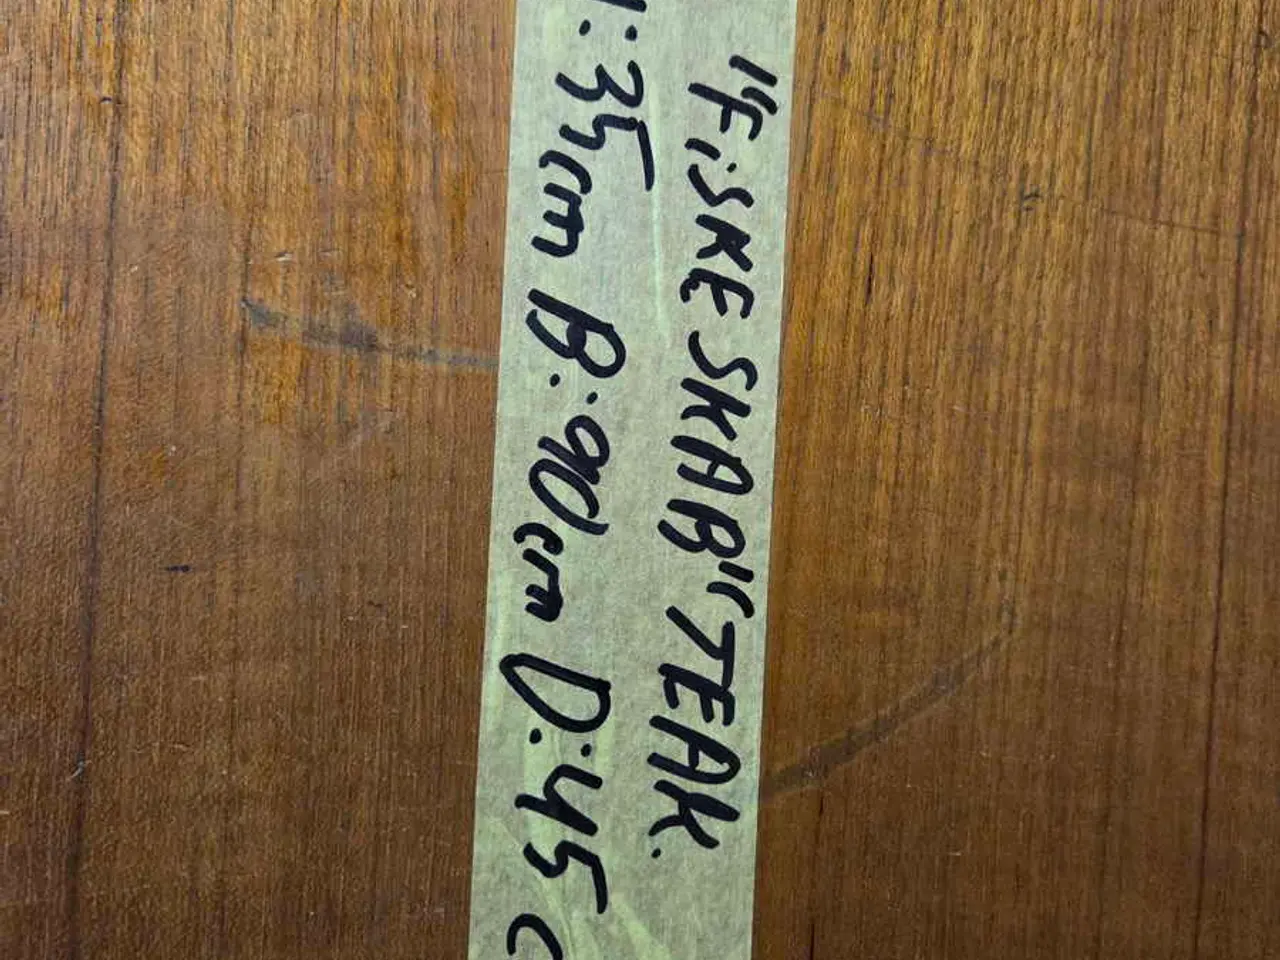 "FiSKE SKAB" TEAK.
H:35cm B:90cm D:45 c